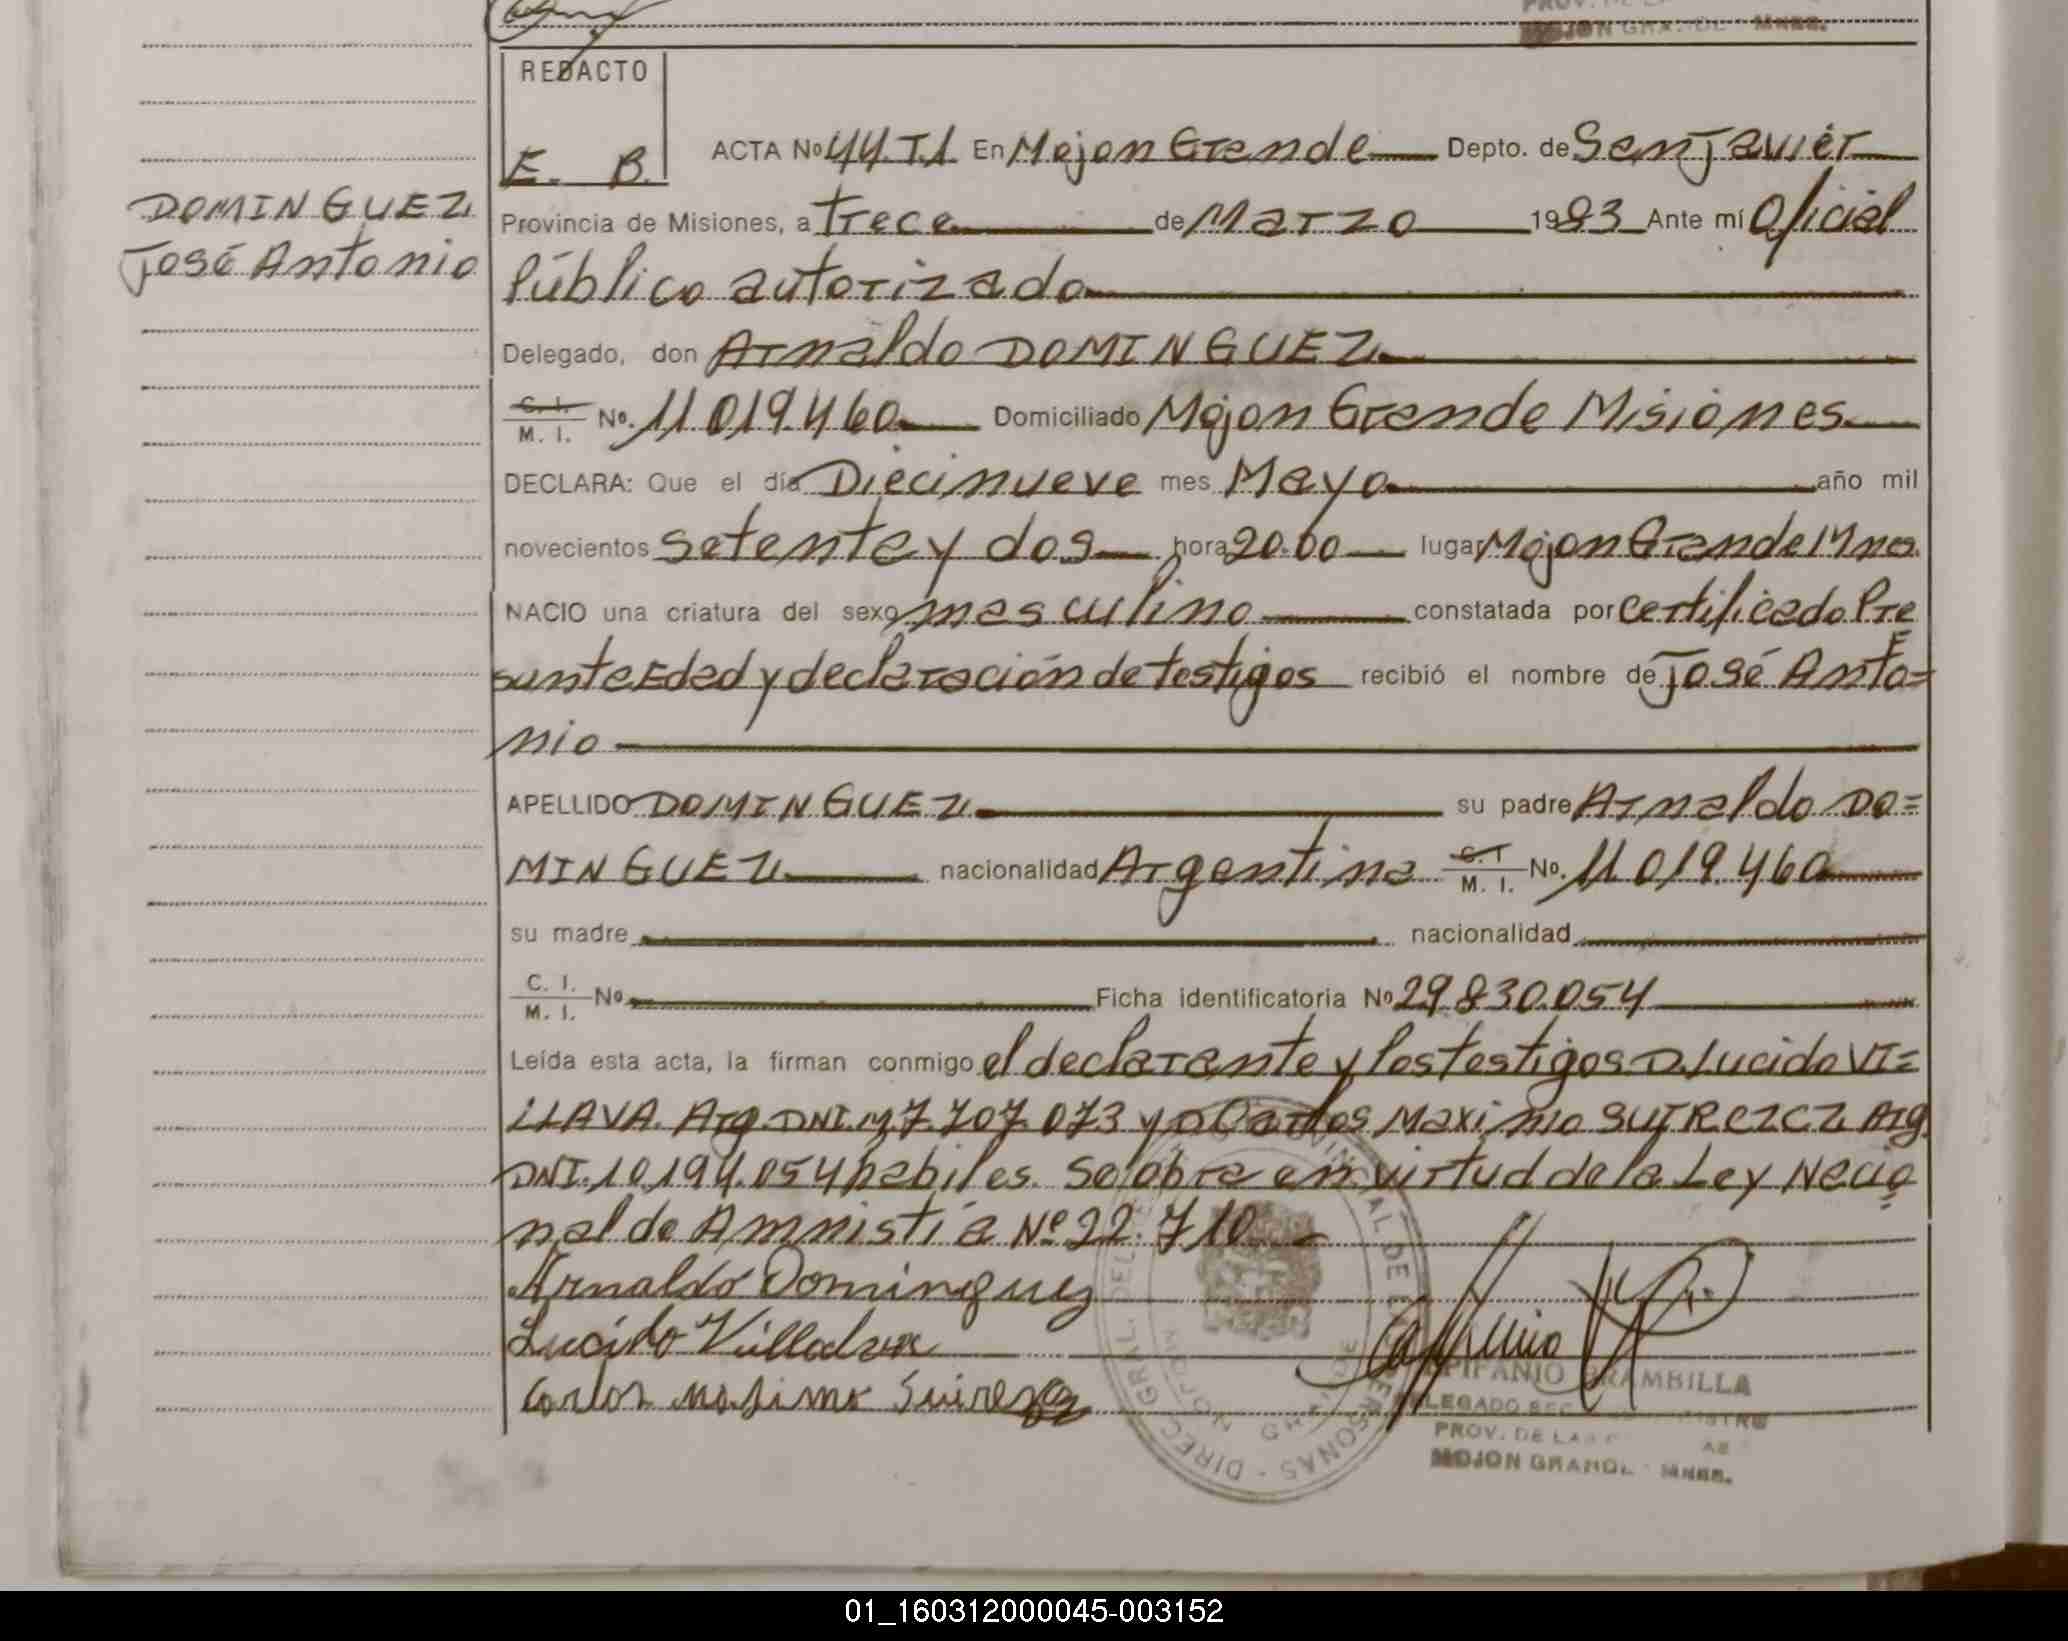 MOJON GRANDE - MNES.
REDACTO
E. B.
ACTA No 44.T.1 En Mojon Grande Depto. de San Javier
DOMINGUEZ
José Antonio
Provincia de Misiones, a trece de Marzo 1983 Ante mí Oficial
Público autorizado
Delegado, don Arnaldo DOMINGUEZ
C. I. / M. I. No. 11.019.460 Domiciliado Mojon Grande Misiones
DECLARA: Que el día Diecinueve mes Mayo año mil
novecientos setenta y dos hora 20.00 lugar Mojon Grande Mnes.
NACIO una criatura del sexo masculino constatada por certificado Pre
sunta Edad y declaración de testigos recibió el nombre de José Anto=
nio
APELLIDO DOMINGUEZ su padre Arnaldo DO=
MINGUEZ nacionalidad Argentina C. I / M. I. No. 11.019.460
su madre nacionalidad
C. I. / M. I. No Ficha identificatoria No 29.830.054
Leída esta acta, la firman conmigo el declarante y los testigos D. Lucido VI=
LLAVA. Arg. DNI.M 7.707.073 y D Carlos Maximo Arg.
DNI. 10.194.054 habiles. Se labra en virtud de la Ley Nacio
nal de Amnistía Nº 22.710
Arnaldo Dominguez
Lucido
Carlos Maximo
EPIFANIO BRAMBILLA
DELEGADO
PROV. DE
MOJON GRANDE - MNES.
01_160312000045-003152